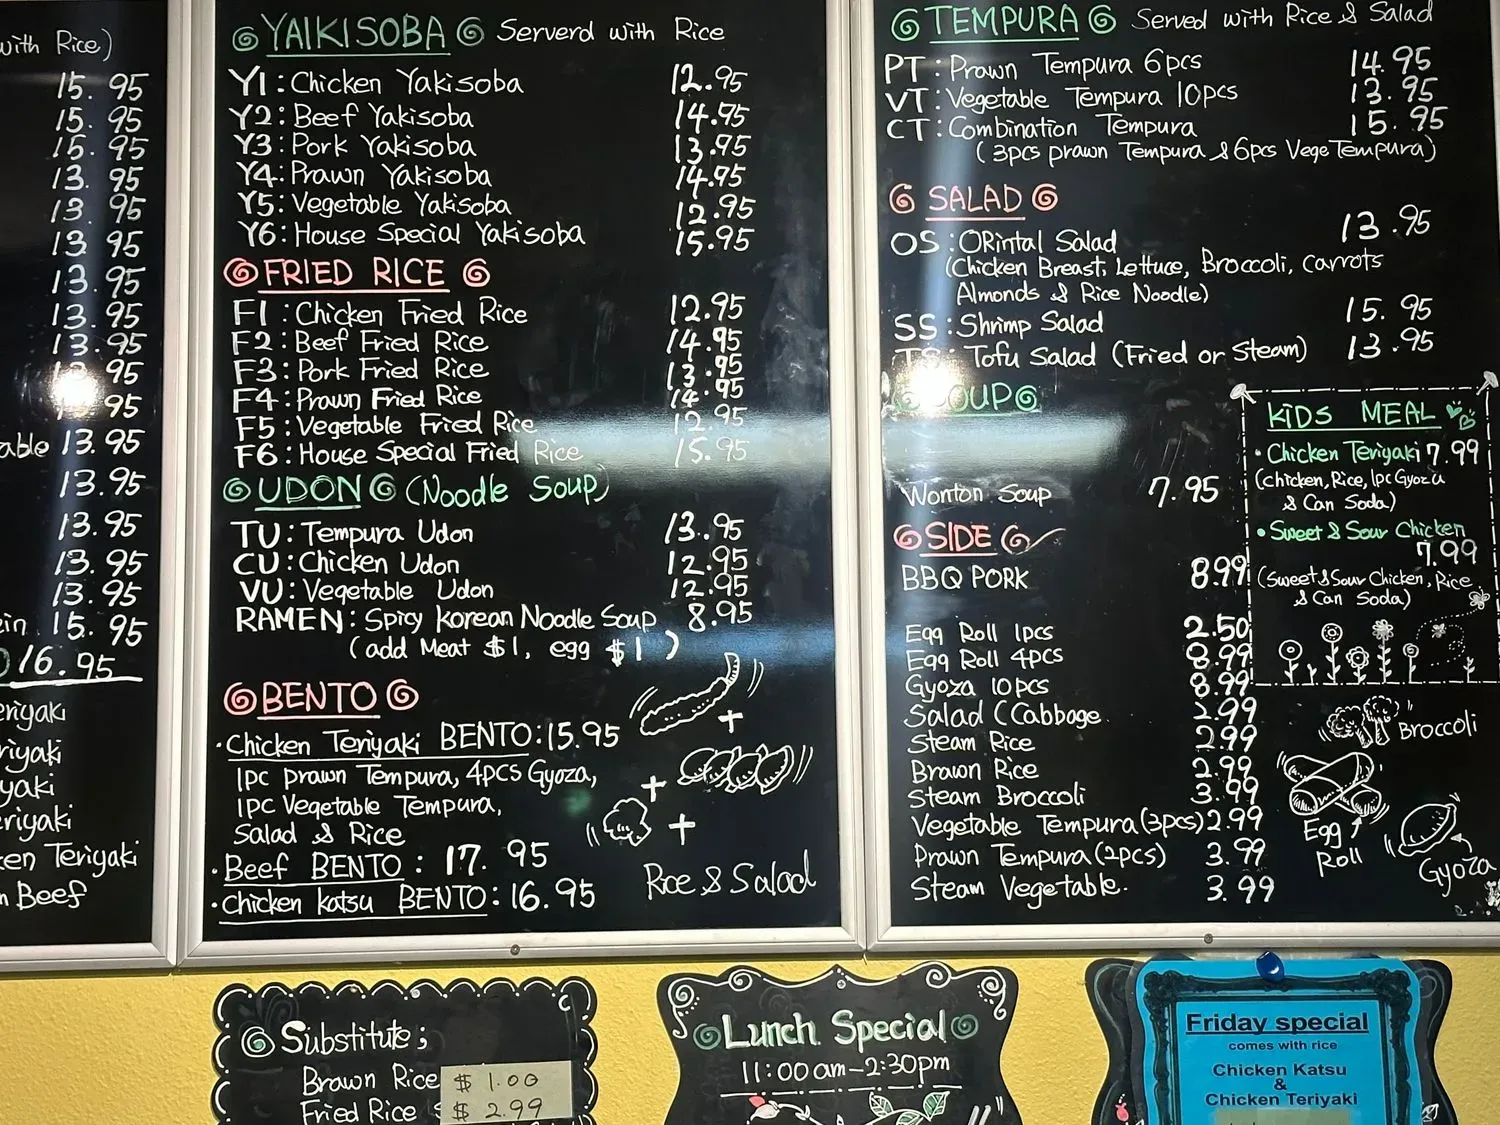 with Rice)
15.95
15.95
15.95
13.95
13.95
13.95
13.95
13.95
13.95
95
95
able 13.95
13.95
13.95
13.95
13.95
in 15.95
16.95
eriyaki
riyaki
yaki
eriyaki
en Teriyaki
n Beef
YAIKISOBA Serverd with Rice
Y1: Chicken Yakisoba 12.95
Y2: Beef Yakisoba 14.95
Y3: Pork Yakisoba 13.95
Y4: Prawn Yakisoba 14.95
Y5: Vegetable Yakisoba 12.95
Y6: House Special Yakisoba 15.95
FRIED RICE
F1: Chicken Fried Rice 12.95
F2: Beef Fried Rice 14.95
F3: Pork Fried Rice 13.95
F4: Prawn Fried Rice 14.95
F5: Vegetable Fried Rice 12.95
F6: House Special Fried Rice 15.95
UDON (Noodle Soup)
TU: Tempura Udon 13.95
CU: Chicken Udon 12.95
VU: Vegetable Udon 12.95
RAMEN: Spicy Korean Noodle Soup 8.95
(add Meat $1, egg $1)
BENTO
·Chicken Teriyaki BENTO: 15.95
1pc prawn Tempura, 4pcs Gyoza,
1pc Vegetable Tempura,
Salad & Rice
·Beef BENTO: 17.95
·Chicken katsu BENTO: 16.95
+
+
+
Rice & Salad
TEMPURA Served with Rice & Salad
PT: Prawn Tempura 6pcs 14.95
VT: Vegetable Tempura 10pcs 13.95
CT: Combination Tempura 15.95
(3pcs prawn Tempura & 6pcs Vege Tempura)
SALAD
OS: ORintal Salad 13.95
(Chicken Breast, Lettuce, Broccoli, carrots
Almonds & Rice Noodle)
SS: Shrimp Salad 15.95
TS: Tofu Salad (Fried or Steam) 13.95
SOUP
Wonton Soup 7.95
SIDE
BBQ PORK 8.99
Egg Roll 1pcs 2.50
Egg Roll 4pcs 8.99
Gyoza 10pcs 8.99
Salad (Cabbage. 2.99
Steam Rice 2.99
Brawn Rice 2.99
Steam Broccoli 3.99
Vegetable Tempura (3pcs) 2.99
Prawn Tempura (2pcs) 3.99
Steam Vegetable. 3.99
KIDS MEAL
·Chicken Teriyaki 7.99
(chicken, Rice, 1pc Gyoza
& Can Soda)
·Sweet & Sour Chicken
7.99
(Sweet & Sour Chicken, Rice
& Can Soda)
Broccoli
Egg
Roll
Gyoza
Substitute;
Brawn Rice $1.00
Fried Rice $2.99
Lunch Special
11:00am-2:30pm
Friday special
comes with rice
Chicken Katsu
&
Chicken Teriyaki